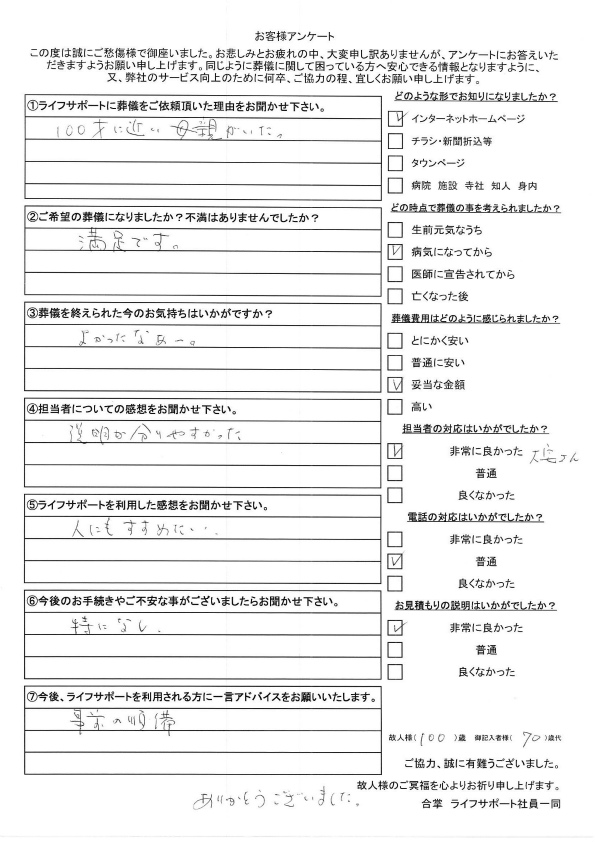 お客様アンケート
この度は誠にご愁傷様で御座いました。お悲しみとお疲れの中、大変申し訳ありませんが、アンケートにお答えいた
だきますようお願い申し上げます。同じように葬儀に関して困っている方へ安心できる情報となりますように、
又、弊社のサービス向上のために何卒、ご協力の程、宜しくお願い申し上げます。
①ライフサポートに葬儀をご依頼頂いた理由をお聞かせ下さい。
100才に近い母親がいた。
②ご希望の葬儀になりましたか?不満はありませんでしたか?
満足です。
③葬儀を終えられた今のお気持ちはいかがですか?
よかったなぁー。
④担当者についての感想をお聞かせ下さい。
説明が分りやすかった
⑤ライフサポートを利用した感想をお聞かせ下さい。
人にもすすめたい...
⑥今後のお手続きやご不安な事がございましたらお聞かせ下さい。
特になし.
⑦今後、ライフサポートを利用される方に一言アドバイスをお願いいたします。
事前の準備
どのような形でお知りになりましたか?
インターネットホームページ
チラシ・新聞折込等
タウンページ
病院 施設 寺社 知人 身内
どの時点で葬儀の事を考えられましたか?
生前元気なうち
病気になってから
医師に宣告されてから
亡くなった後
葬儀費用はどのように感じられましたか?
とにかく安い
普通に安い
妥当な金額
高い
担当者の対応はいかがでしたか?
非常に良かった さん
普通
良くなかった
電話の対応はいかがでしたか?
非常に良かった
普通
良くなかった
お見積もりの説明はいかがでしたか?
非常に良かった
普通
良くなかった
故人様(100)歳 御記入者様(70)歳代
ご協力、誠に有難うございました。
故人様のご冥福を心よりお祈り申し上げます。
ありがとうございました。
合掌 ライフサポート社員一同